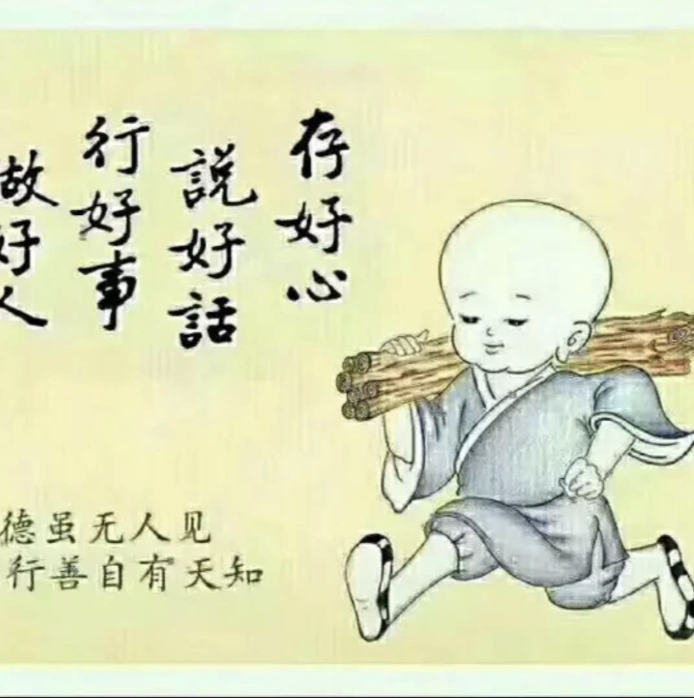 存好心
說好話
行好事
做好人
德虽无人见
行善自有天知